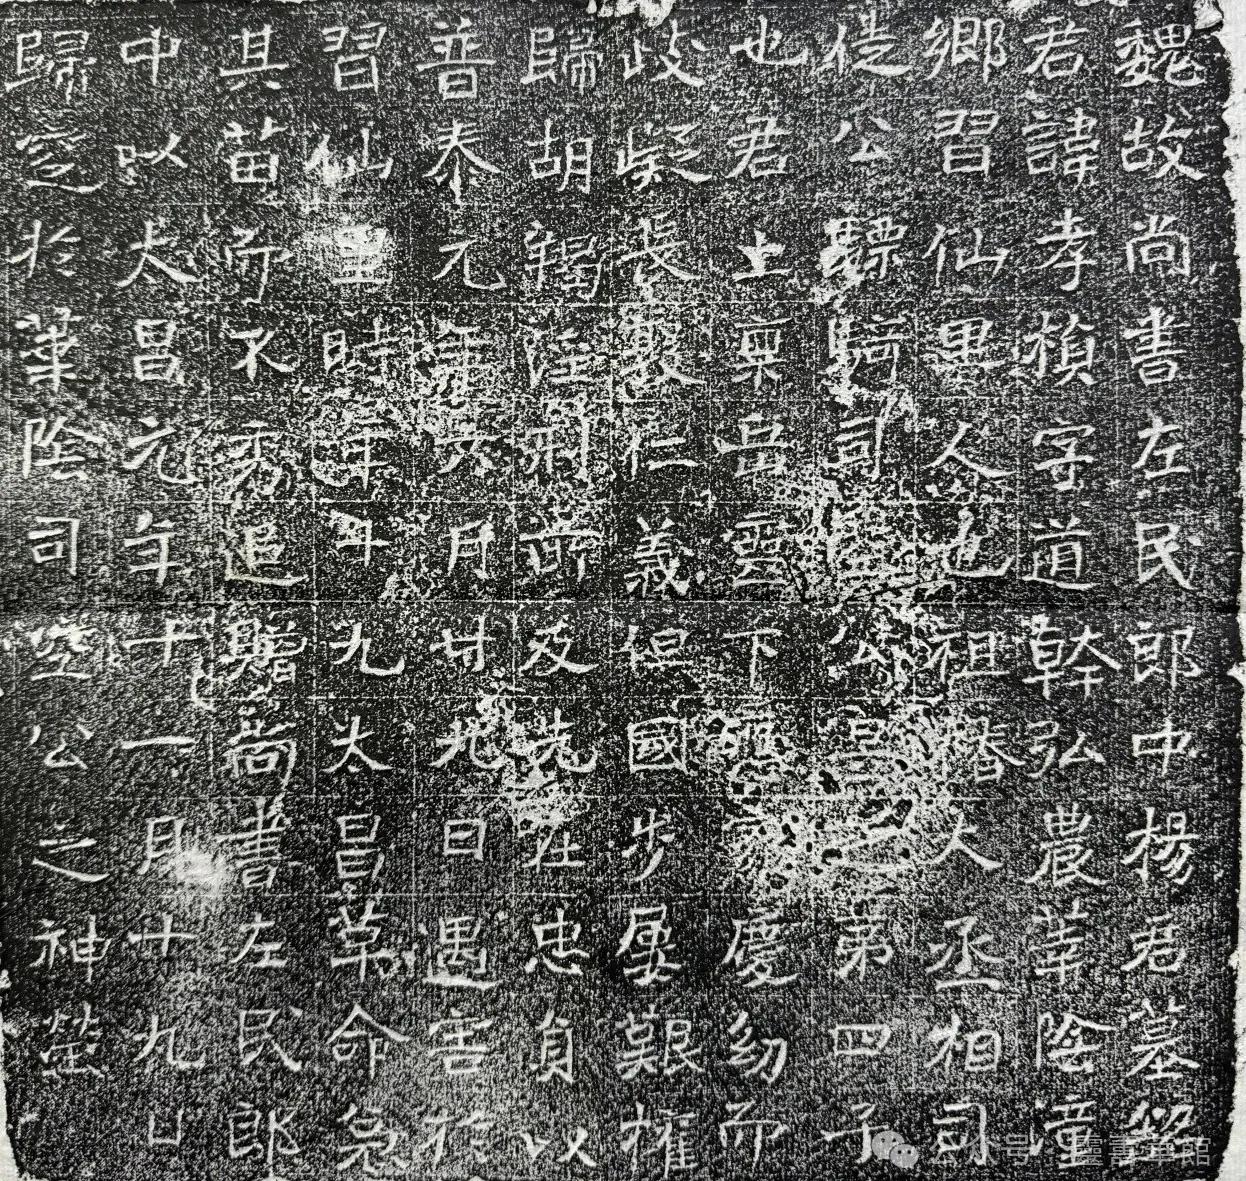 魏故尚書左民郎中楊君墓銘
君諱孝楨字道幹弘農華陰潼
鄉習仙里人也祖椿大丞相司
徒公驃騎司空公昱之第四子
也君上稟岳靈下慶幼而
歧嶷長襲仁義但國步屢艱權
歸胡羯淫刑所及先在忠貞以
普泰元年六月廿九日遇害於
習仙里時年九太昌革命
其苗而不秀追贈尚書左民郎
中以太昌元年十一月十九日
歸窆於華陰司空公之神塋